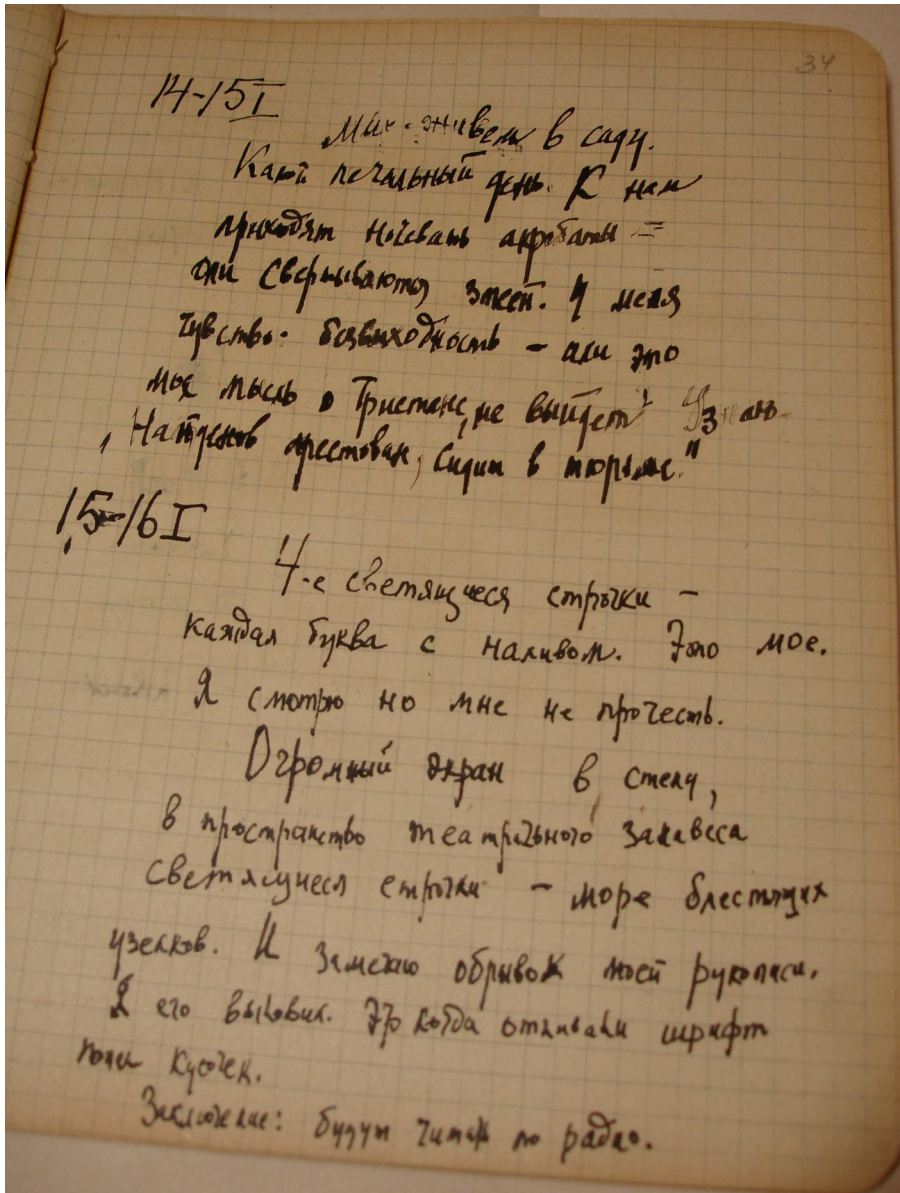 34
14-15 I
Мы живем в саду.
Какой печальный день. К нам
приходят ночевать акробаты =
они свертываются змеей. У меня
чувство безвыходность – или это
моя мысль о Тристане, не выйдет? Узнаю
„Найденов арестован, сидит в тюрьме."
15-16 I
4-е светящиеся строчки –
каждая буква с наливом. Это мое.
Я смотрю но мне не прочесть.
Огромный экран в стену,
в пространство театрального занавеса
светящиеся строчки – море блестящих
узелков. И замечаю обрывок моей рукописи.
Я его выловил. Это когда отливали шрифт
попал кусочек.
Заключение: будут читать по радио.